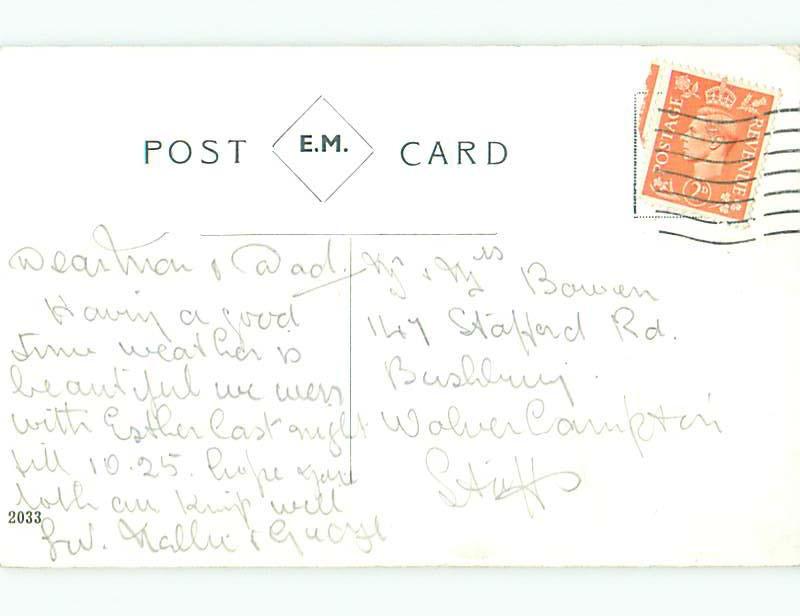 POST E.M. CARD
POSTAGE REVENUE
2D
Dear Mom & Dad.
Having a good
time weather is
beautiful we were
with Esther last night
till 10.25. hope you
both are keep well
Lov.
2033
Mr & Mrs Bowen
147 Stafford Rd.
Bushbury.
Wolverhampton
Staffs